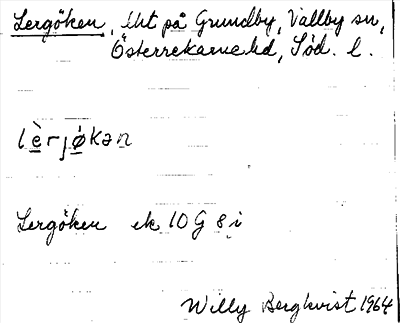 Lergöken, lht på Grundby, Vallby sn,
Österrekarne hd, Söd. l.
lè̱rjǿ̱kan̠
Lergöken ek 10 G 8 i
Willy Bergkvist 1964